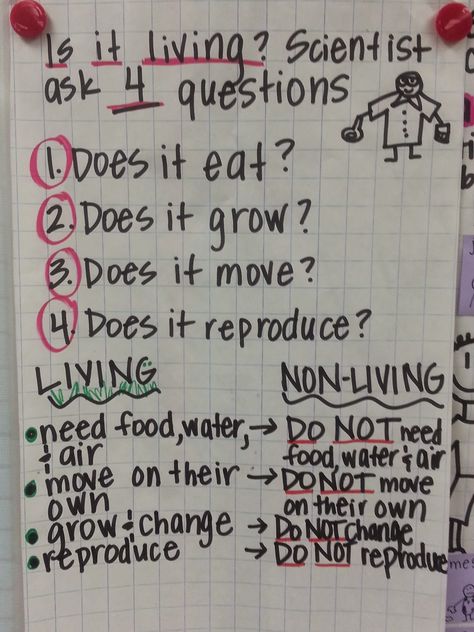 Is it living? Scientist
ask 4 questions
1. Does it eat?
2. Does it grow?
3. Does it move?
4. Does it reproduce?
LIVING
• need food, water,
& air
• move on their
own
• grow & change
• reproduce
NON-LIVING
→ DO NOT need
food, water & air
→ DO NOT move
on their own
→ Do NOT change
→ DO NOT reproduce
mes